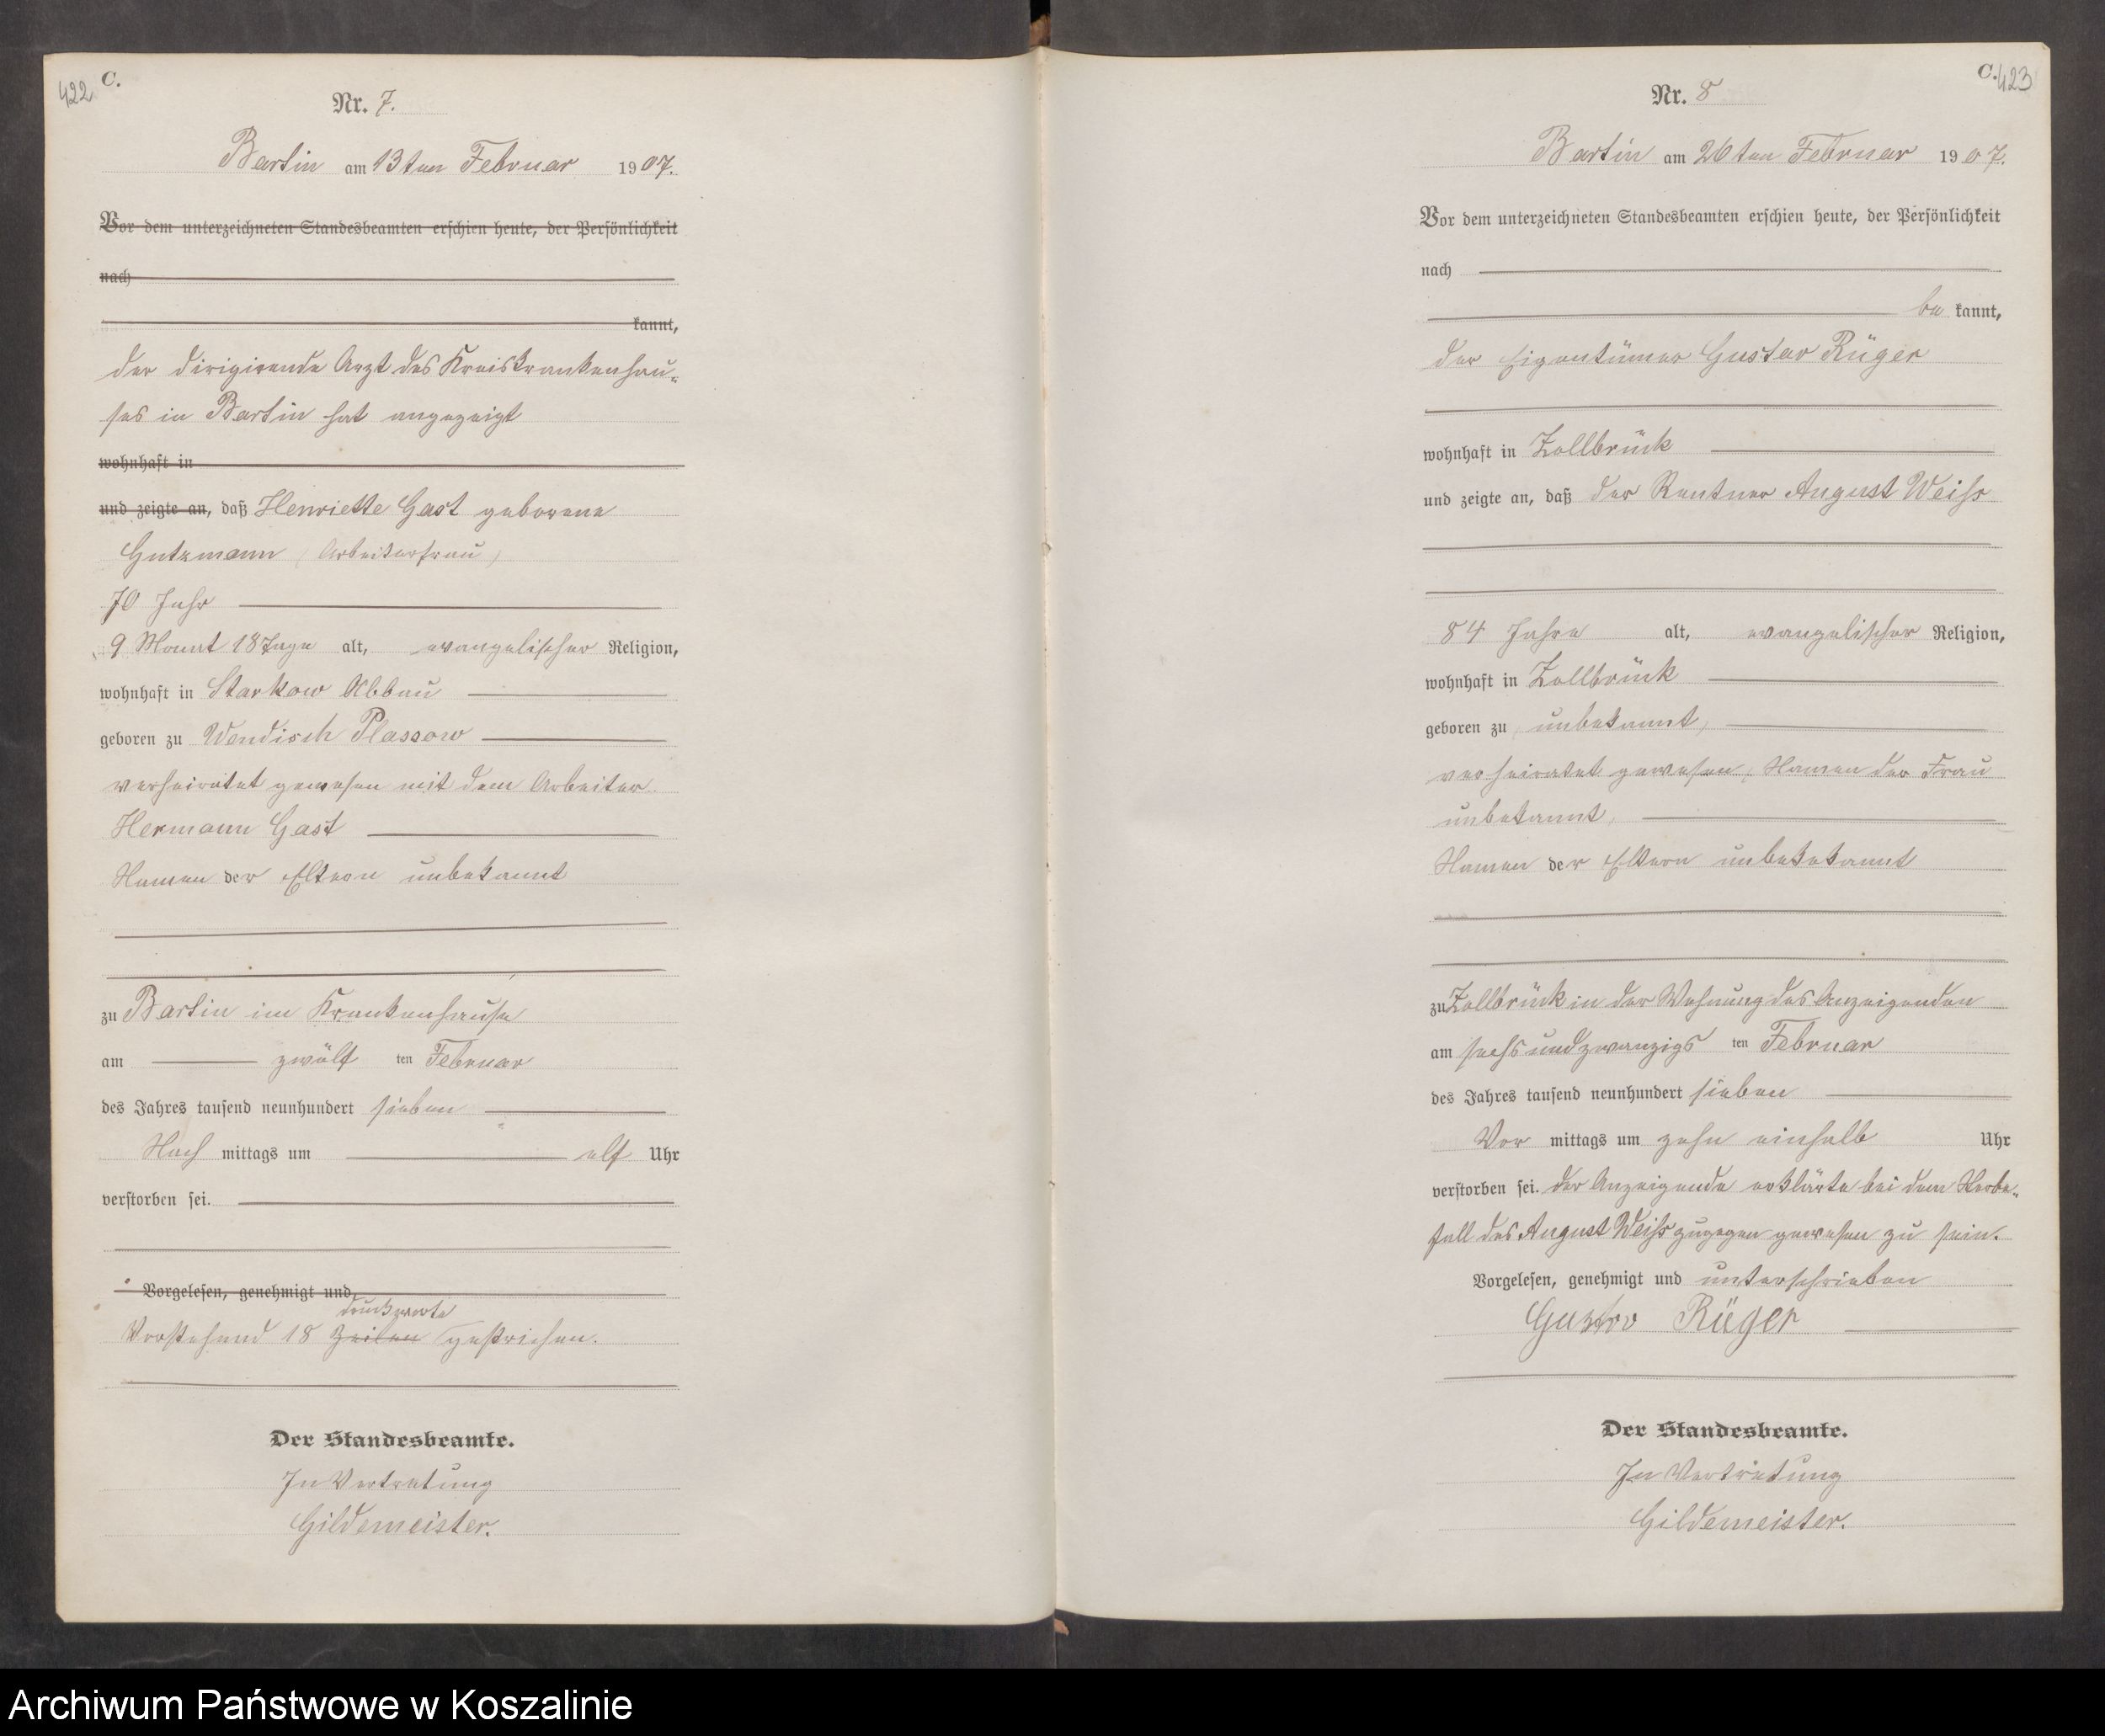 422 C.
Nr. 7.
Bartin am 13ten Februar 1907.
Vor dem unterzeichneten Standesbeamten erschien heute, der Persönlichkeit
nach
kannt,
der dirigirende Arzt des Kreiskrankenhau-
ses in Bartin hat angezeigt
wohnhaft in
und zeigte an, daß Henriette Gast geborene
Gutzmann (Arbeiterfrau)
70 Jahr
9 Monat 18 Tage alt, evangelischer Religion,
wohnhaft in Starkow Abbau
geboren zu Wendisch Plassow
verheiratet gewesen mit dem Arbeiter
Hermann Gast
Namen der Eltern unbekannt
zu Bartin im Krankenhause
am zwölf ten Februar
des Jahres tausend neunhundert sieben
Nach mittags um elf Uhr
verstorben sei.
Vorgelesen, genehmigt und
Druckworte
Vorstehend 18 Zeilen gestrichen.
Der Standesbeamte.
In Vertretung
Gildemeister.
C. 423
Nr. 8
Bartin am 26ten Februar 1907.
Vor dem unterzeichneten Standesbeamten erschien heute, der Persönlichkeit
nach
be kannt,
der Eigentümer Gustav Rüger
wohnhaft in Zollbrück
und zeigte an, daß der Rentner August Weiß
84 Jahre alt, evangelischer Religion,
wohnhaft in Zollbrück
geboren zu (unbekannt)
verheiratet gewesen, Namen der Frau
unbekannt,
Namen der Eltern unbekekannt
zu Zollbrück in der Wohnung des Anzeigenden
am sechsundzwanzigs ten Februar
des Jahres tausend neunhundert sieben
Vor mittags um zehn einhalb Uhr
verstorben sei. Der Anzeigende erklärte bei dem Sterbe-
fall des August Weiß zugegen gewesen zu sein.
Vorgelesen, genehmigt und unterschrieben
Gustav Rüger
Der Standesbeamte.
In Vertretung
Gildemeister.
Archiwum Państwowe w Koszalinie